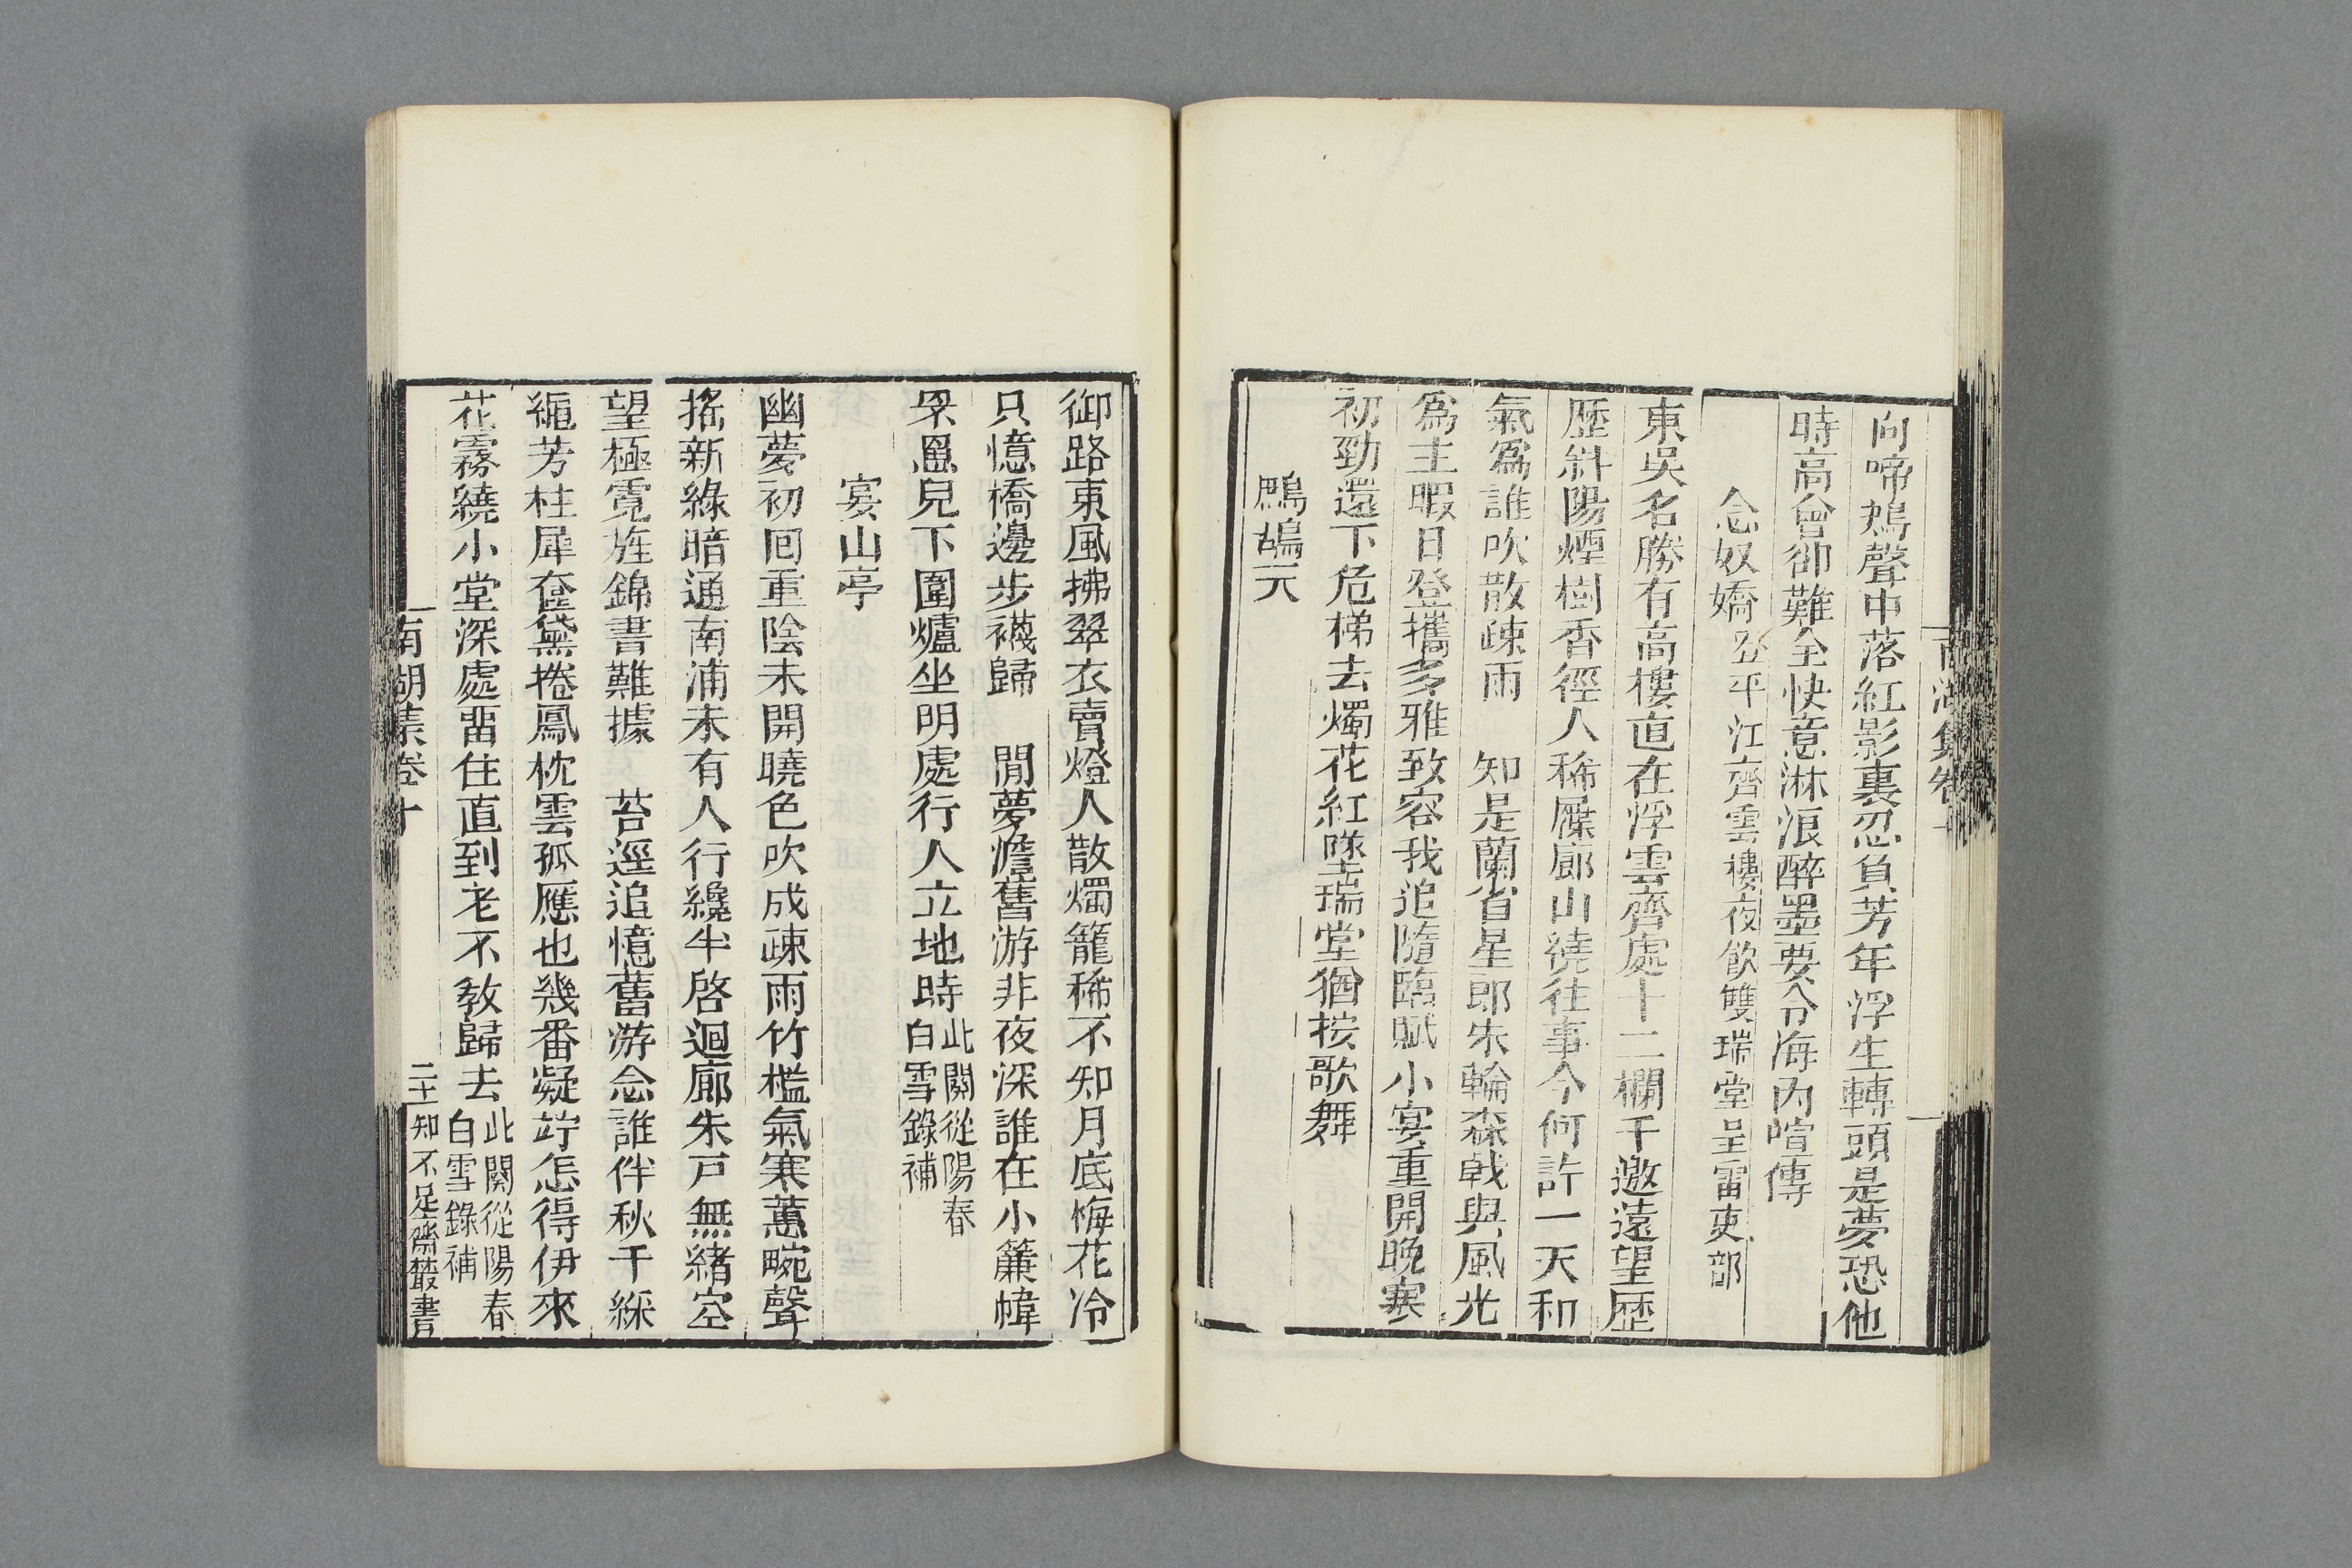 向啼鴂聲中落紅影裏忍負芳年浮生轉頭是夢恐他
時高會卻難全快意淋浪醉墨要分海內喧傳
念奴嬌登平江齊雲樓夜飲雙瑞堂呈雷吏部
東吳名勝有高樓直在浮雲齊處十二欄干邀遠望歷
歷斜陽煙樹香徑人稀屧廊山繞往事今何許一天和
氣爲誰吹散疎雨　知是蘭省星郎朱輪森戟與風光
爲主暇日登攜多雅致容我追隨臨賦小宴重開晚寒
初勁還下危梯去燭花紅墜瑞堂猶按歌舞
鷓鴣天
御路東風拂翠衣賣燈人散燭籠稀不知月底梅花冷
只憶橋邊步襪歸　閒夢澹舊游非夜深誰在小簾幃
罘罳兒下圍爐坐明處行人立地時此闋從陽春
白雪錄補
宴山亭
幽夢初回重陰未開曉色吹成疎雨竹檻氣寒蕙畹聲
搖新綠暗通南浦未有人行纔半啓迴廊朱戸無緖空
望極霓旌錦書難據　苔逕追憶舊游念誰伴秋千綵
繩芳柱犀奩黛捲鳳枕雲孤應也幾番凝竚怎得伊來
花霧繞小堂深處畱住直到老不敎歸去此闋從陽春
白雪錄補
南湖集卷十
二十
知不足齋叢書